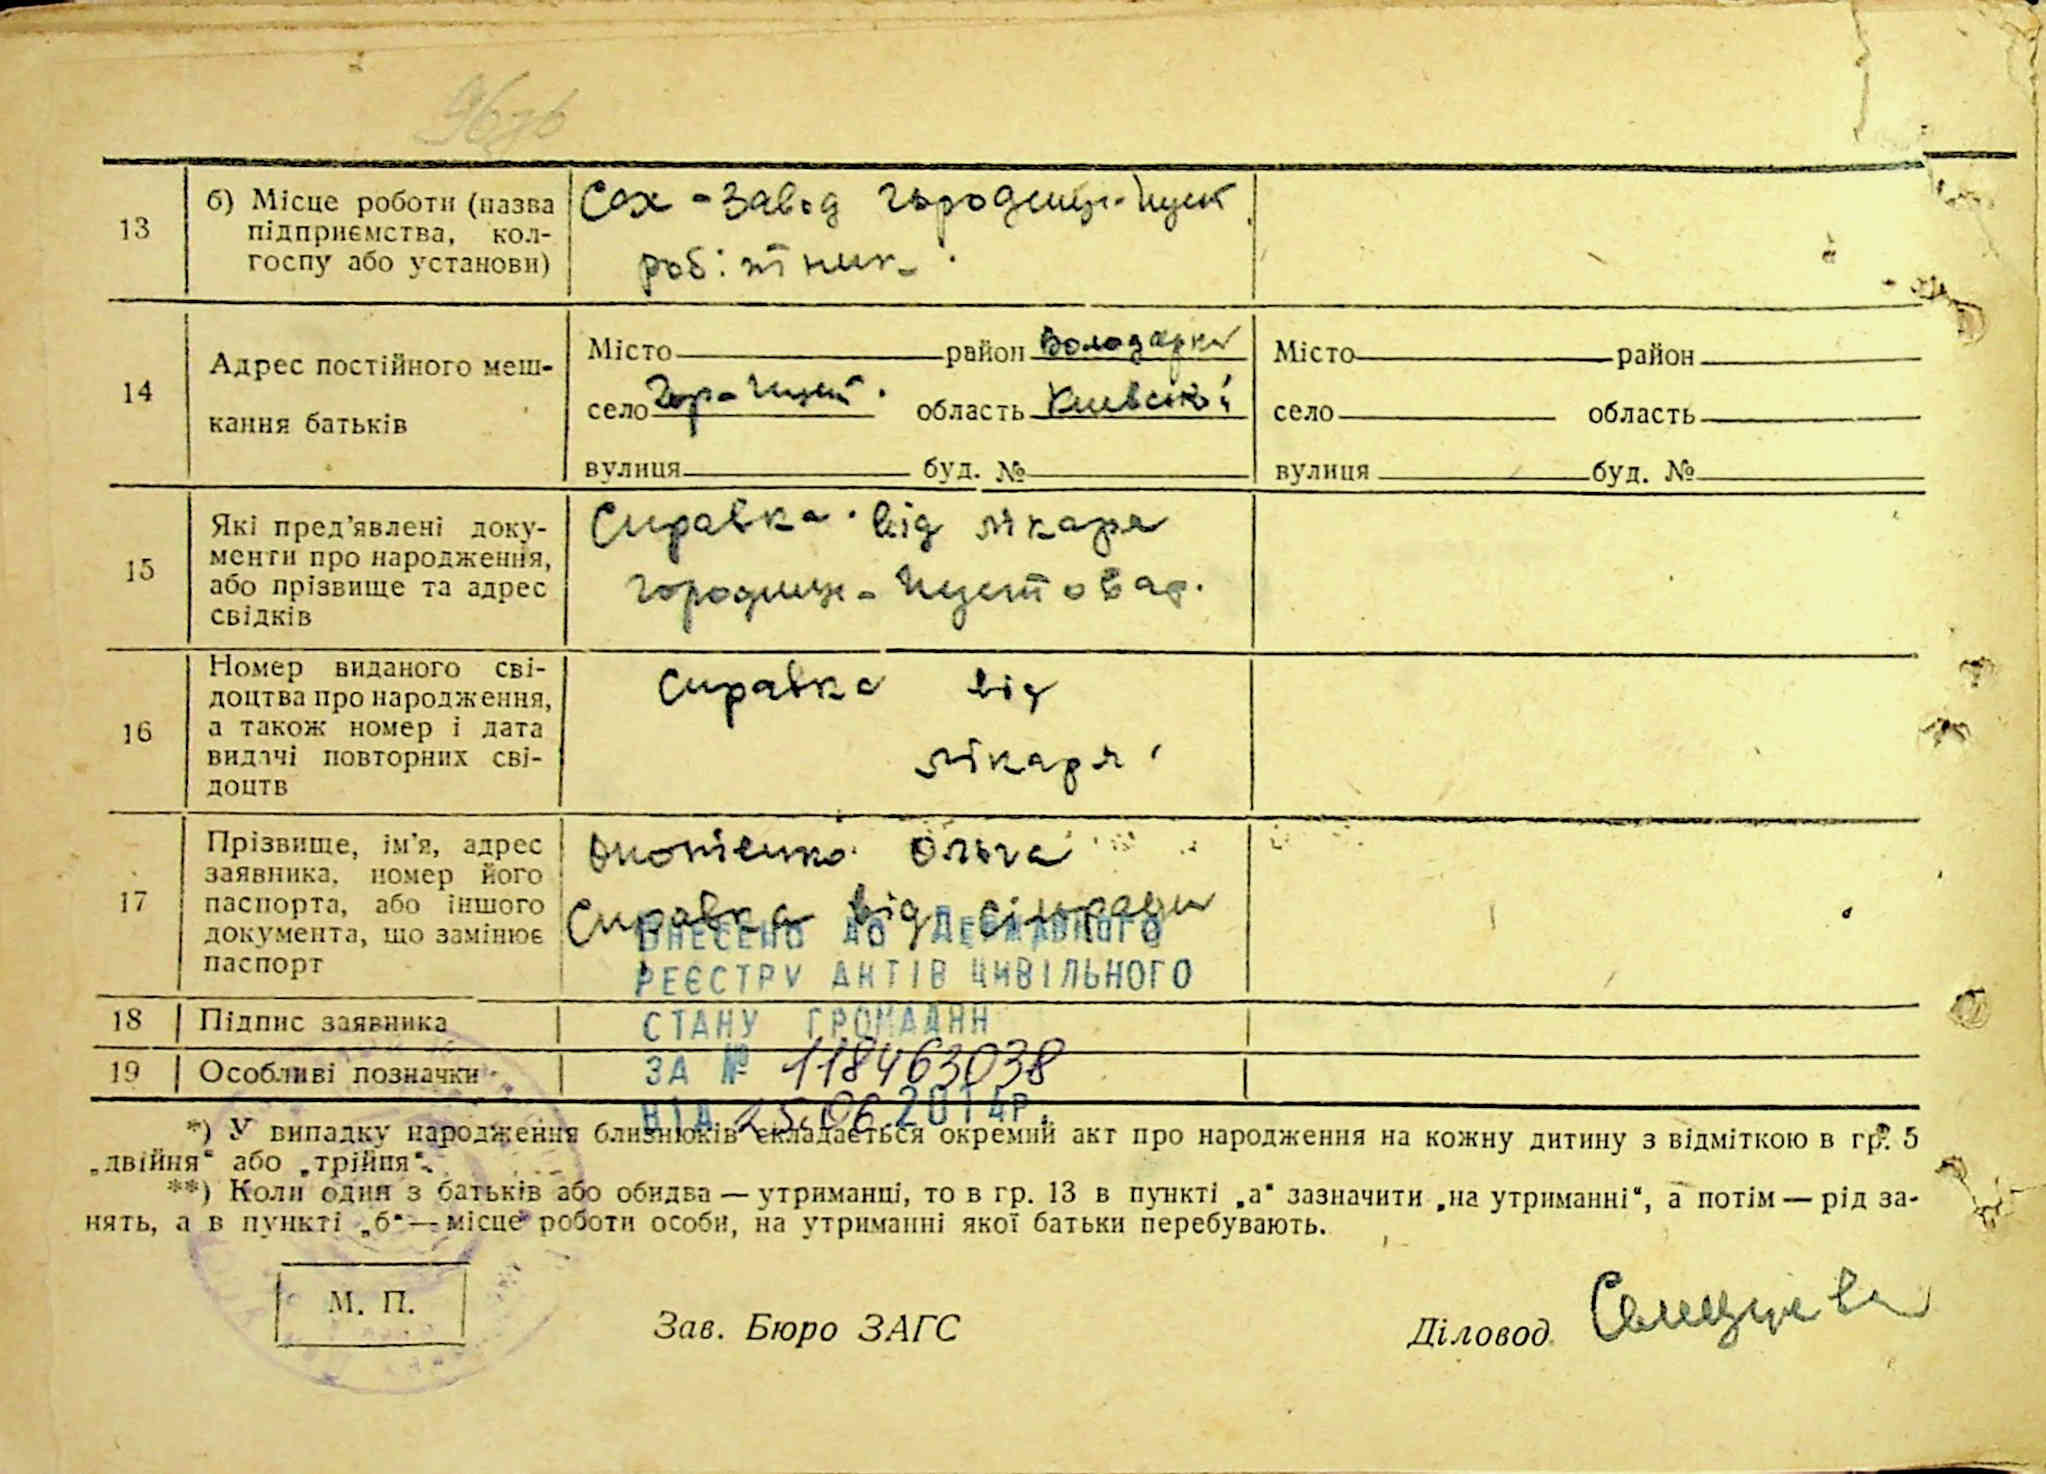 13
б) Місце роботи (назва
підприємства, кол-
госпу або установи)
Сах-завод Городище-Пуст
робітник.
14
Адрес постійного меш-
кання батьків
Місто район Володарка
село Гор-Пуст. область Київської
вулиця буд. №
Місто район
село область
вулиця буд. №
15
Які пред'явлені доку-
менти про народження,
або прізвище та адрес
свідків
Справка від лікаря
Городище-Пустовар.
16
Номер виданого сві-
доцтва про народження,
а також номер і дата
видачі повторних сві-
доцтв
Справка від
лікаря
17
Прізвище, ім'я, адрес
заявника, номер його
паспорта, або іншого
документа, що замінює
паспорт
Ольга
Справка від сільради
ВНЕСЕНО ДО ДЕРЖАВНОГО
РЕЄСТРУ АКТІВ ЦИВІЛЬНОГО
СТАНУ ГРОМАДЯН
ЗА № 118463038
ВІД 25.06.2014р.
18
Підпис заявника
19
Особливі позначки
*) У випадку народження близнюків складається окремий акт про народження на кожну дитину з відміткою в гр. 5
„двійня“ або „трійня“.
**) Коли один з батьків або обидва — утриманці, то в гр. 13 в пункті „а“ зазначити „на утриманні“, а потім — рід за-
нять, а в пункті „б“ — місце роботи особи, на утриманні якої батьки перебувають.
М. П.
Зав. Бюро ЗАГС
Діловод